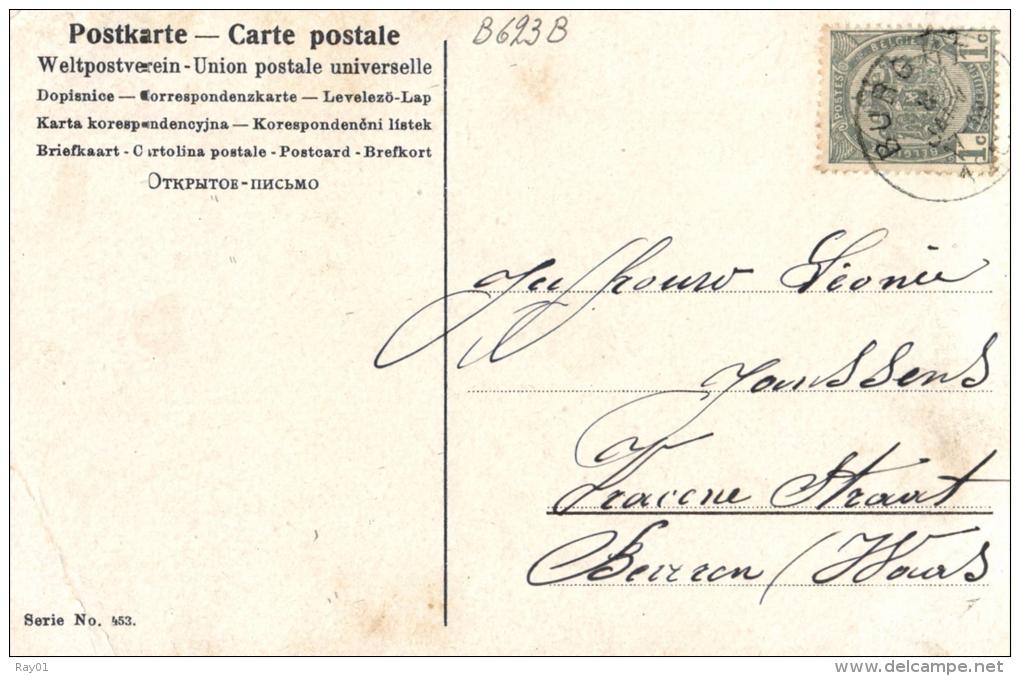 Postkarte — Carte postale
Weltpostverein - Union postale universelle
Dopisnice — Correspondenzkarte — Levelezö-Lap
Karta korespondencyjna — Korespondenčni lístek
Briefkaart - Cartolina postale - Postcard - Brefkort
Открытое-письмо
B623B
1c BELGIE 1c
POSTES
BELGIQUE
BURC
Juffrouw Léonie
Janssens
Straat
(Waas
Serie No. 453.
Ray01
www.delcampe.net